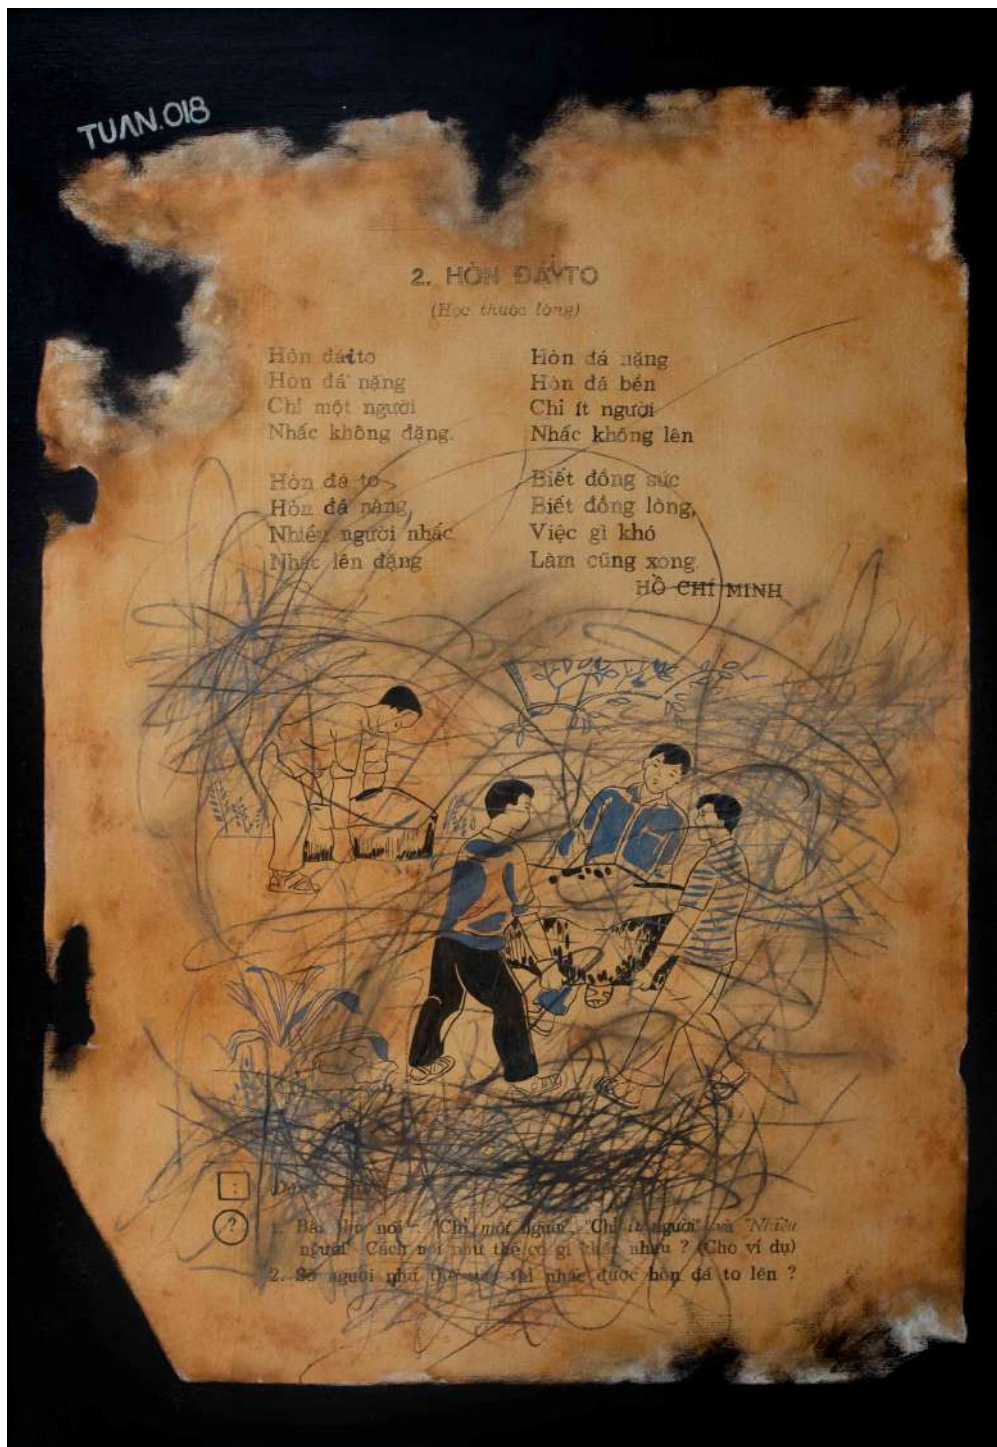 TUAN.018
2. HÒN ĐÁ TO
(Học thuộc lòng)
Hòn đá to
Hòn đá nặng
Chỉ một người
Nhấc không đặng.
Hòn đá to
Hòn đá nặng,
Nhiều người nhấc
Nhấc lên đặng
Hòn đá nặng
Hòn đá bền
Chỉ ít người
Nhấc không lên
Biết đồng sức
Biết đồng lòng,
Việc gì khó
Làm cũng xong.
HỒ CHÍ MINH
:
?
1. Bài nói : "Chỉ một người", "Chỉ ít người" và "Nhiều
người" Cách nói như thế có gì khác nhau ? (Cho ví dụ)
2. Số người như thế thì nhấc được hòn đá to lên ?